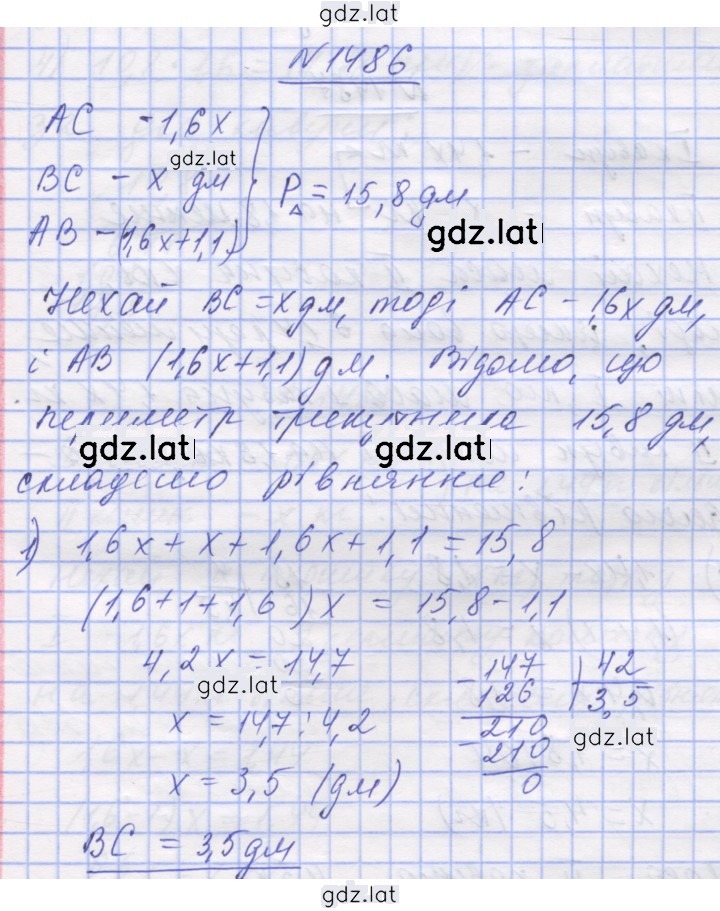 gdz.lat
N1486
AC - 1,6x
gdz.lat
BC - x дм
P△ = 15,8 дм
AB - (1,6x+1,1)
gdz.lat
Нехай BC = x дм, тоді AC - 1,6x дм,
і AB (1,6x+1,1) дм. Відомо, що
периметр трикутника 15,8 дм,
gdz.lat gdz.lat
складемо рівняння:
1) 1,6x + x + 1,6x + 1,1 = 15,8
(1,6+1+1,6)x = 15,8-1,1
4,2x = 14,7
gdz.lat
x = 14,7 : 4,2
x = 3,5 (дм)
- 147 | 42
126 | 3,5
- 210
gdz.lat
210
0
BC = 3,5 дм
gdz.lat